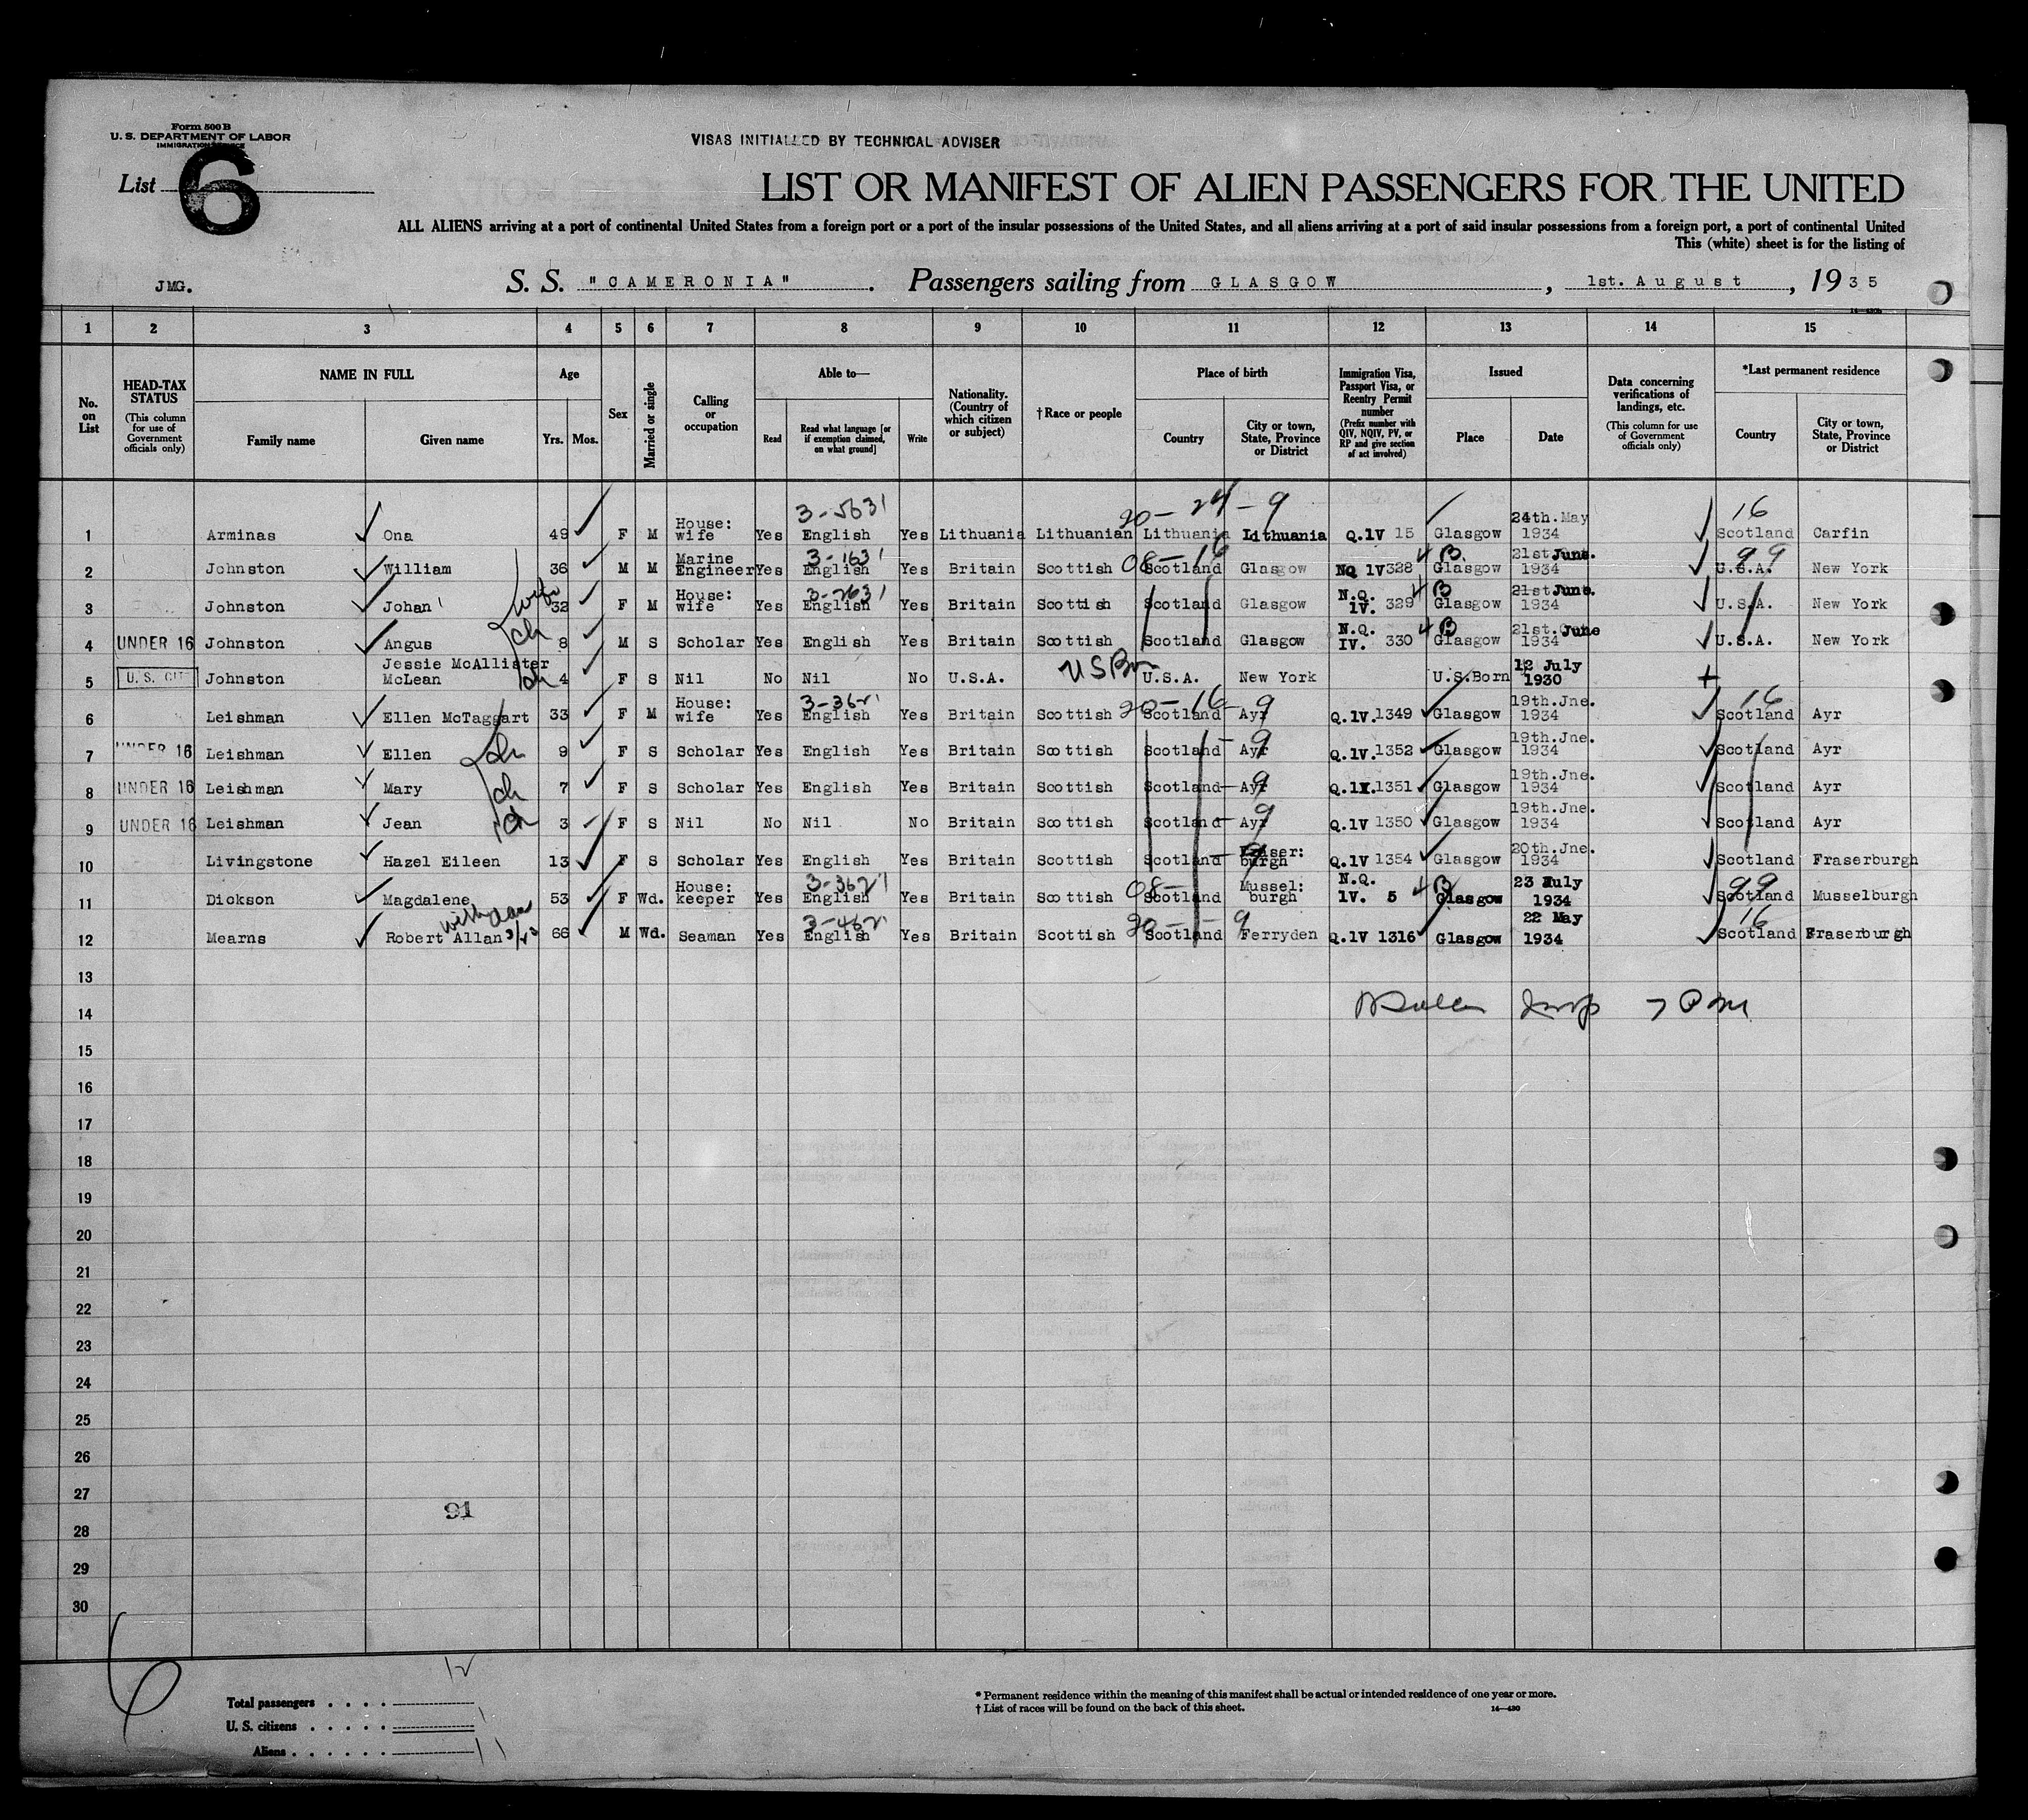 Form 500 B
U. S. DEPARTMENT OF LABOR
IMMIGRATION SERVICE
VISAS INITIALLED BY TECHNICAL ADVISER
List 6
LIST OR MANIFEST OF ALIEN PASSENGERS FOR THE UNITED
ALL ALIENS arriving at a port of continental United States from a foreign port or a port of the insular possessions of the United States, and all aliens arriving at a port of said insular possessions from a foreign port, a port of continental United
This (white) sheet is for the listing of
JMG. S. S. "CAMERONIA". Passengers sailing from GLASGOW, 1st. August, 1935
1 2 3 4 5 6 7 8 9 10 11 12 13 14 15
No. on List
HEAD-TAX STATUS (This column for use of Government officials only)
NAME IN FULL
Family name Given name
Age
Yrs. Mos.
Sex
Married or single
Calling or occupation
Able to—
Read Read what language [or if exemption claimed, on what ground] Write
Nationality. (Country of which citizen or subject)
† Race or people
Place of birth
Country City or town, State, Province or District
Immigration Visa, Passport Visa, or Reentry Permit number (Prefix number with QIV, NQIV, PV, or RP and give section of act involved)
Issued
Place Date
Data concerning verifications of landings, etc. (This column for use of Government officials only)
*Last permanent residence
Country City or town, State, Province or District
3-5631 20- 24 - 9 16
1 Arminas Ona 49 F M House: wife Yes English Yes Lithuania Lithuanian Lithuania Lithuania Q.1V 15 Glasgow 24th. May 1934 Scotland Carfin
3-1631 08-16 4 B. 99
2 Johnston William 36 M M Marine Engineer Yes English Yes Britain Scottish Scotland Glasgow NQ 1V 328 Glasgow 21st June. 1934 U.S.A. New York
wife 3-2631 4 B
3 Johnston Johan 32 F M House: wife Yes English Yes Britain Scottish Scotland Glasgow N.Q. 1V. 329 Glasgow 21st June. 1934 U.S.A. New York
ch 4 B
4 UNDER 16 Johnston Angus 8 M S Scholar Yes English Yes Britain Scottish Scotland Glasgow N.Q. IV. 330 Glasgow 21st. June 1934 U.S.A. New York
ch US Brn
5 U. S. CIT Johnston Jessie McAllister McLean 4 F S Nil No Nil No U.S.A. U.S.A. New York U.S.Born 12 July 1930
3-3621 20-16-9 16
6 Leishman Ellen McTaggart 33 F M House: wife Yes English Yes Britain Scottish Scotland Ayr Q.1V. 1349 Glasgow 19th. Jne. 1934 Scotland Ayr
ch 9
7 UNDER 16 Leishman Ellen 9 F S Scholar Yes English Yes Britain Scottish Scotland Ayr Q.1V. 1352 Glasgow 19th. Jne. 1934 Scotland Ayr
ch 9
8 UNDER 16 Leishman Mary 7 F S Scholar Yes English Yes Britain Scottish Scotland Ayr Q.1V. 1351 Glasgow 19th. Jne. 1934 Scotland Ayr
ch 9
9 UNDER 16 Leishman Jean 3 F S Nil No Nil No Britain Scottish Scotland Ayr Q.1V 1350 Glasgow 19th. Jne. 1934 Scotland Ayr
10 Livingstone Hazel Eileen 13 F S Scholar Yes English Yes Britain Scottish Scotland Fraser: burgh Q.1V 1354 Glasgow 20th. Jne. 1934 Scotland Fraserburgh
3-3621 08- 4 B 99
11 Dickson Magdalene 53 F Wd. House: keeper Yes English Yes Britain Scottish Scotland Mussel: burgh N.Q. 1V. 5 Glasgow 23 July 1934 Scotland Musselburgh
3-4621 20- - 9 16
12 Mearns Robert Allan 66 M Wd. Seaman Yes English Yes Britain Scottish Scotland Ferryden Q.1V 1316 Glasgow 22 May 1934 Scotland Fraserburgh
13
14
15
16
17
18
19
20
21
22
23
24
25
26
27
91
28
29
30
6
Total passengers 12
U. S. citizens 1
Aliens 11
* Permanent residence within the meaning of this manifest shall be actual or intended residence of one year or more.
† List of races will be found on the back of this sheet.
14—430